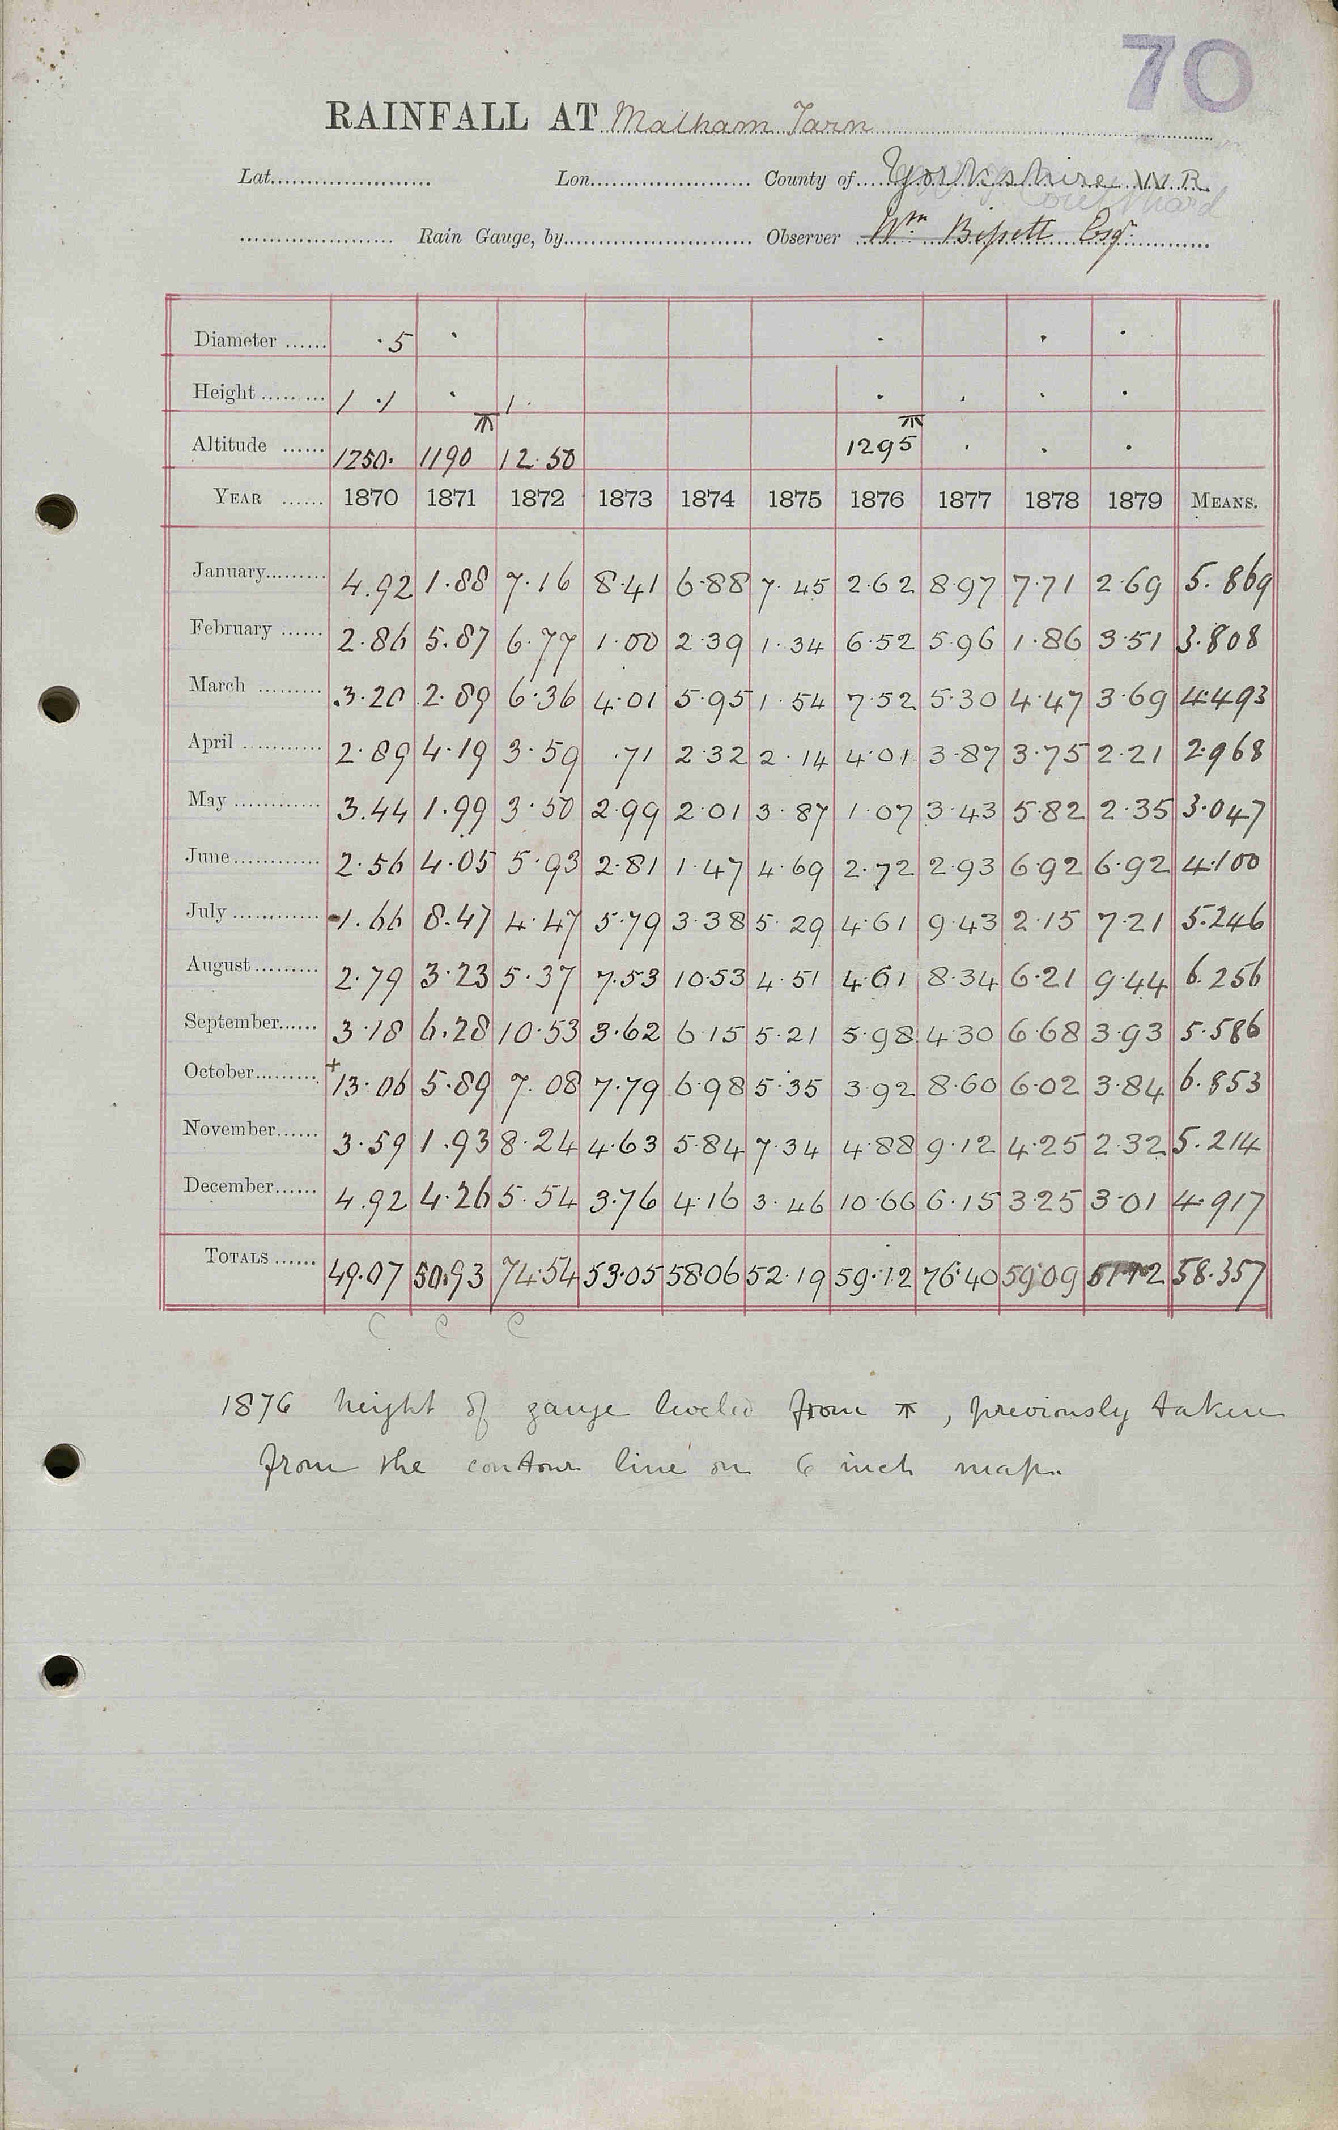 70
RAINFALL AT Malham Tarn
Lat. Lon. County of Yorkshire W.R.
Rain Gauge, by Observer Wm. Bissett Esqr.
Diameter ...... ·5 · · · ·
Height ......... 1 ·1 · 1 · · · · ·
Altitude ...... 1250· 1190 12·50 1295 · · ·
YEAR ...... 1870 1871 1872 1873 1874 1875 1876 1877 1878 1879 MEANS.
January......... 4.92 1.88 7·16 8·41 6·88 7·45 2·62 8·97 7·71 2·69 5.869
February ...... 2·86 5.87 6·77 1·00 2·39 1·34 6·52 5·96 1·86 3·51 3·808
March ......... 3·20 2·89 6·36 4·01 5·95 1·54 7·52 5·30 4·47 3·69 4·493
April ............ 2·89 4·19 3·59 ·71 2·32 2·14 4·01 3·87 3·75 2·21 2·968
May ............ 3.44 1.99 3·50 2·99 2·01 3·87 1·07 3·43 5·82 2·35 3·047
June ............ 2·56 4·05 5·93 2·81 1·47 4·69 2·72 2·93 6·92 6·92 4·100
July ............ 1.66 8·47 4·47 5·79 3·38 5·29 4·61 9·43 2·15 7·21 5·246
August ......... 2·79 3·23 5·37 7·53 10·53 4·51 4·61 8·34 6·21 9·44 6·256
September...... 3·18 6.28 10·53 3·62 6·15 5·21 5·98 4·30 6·68 3·93 5·586
October......... +13·06 5·89 7·08 7·79 6·98 5·35 3·92 8·60 6·02 3·84 6.853
November...... 3·59 1.93 8·24 4·63 5·84 7·34 4·88 9·12 4·25 2·32 5.214
December...... 4.92 4·26 5·54 3·76 4·16 3·46 10·66 6·15 3·25 3·01 4·917
TOTALS ...... 49·07 50·93 74·54 53·05 58·06 52·19 59·12 76·40 59·09 58·357
C C C
1876 height of gauge leveled from , previously taken
from the contour line on 6 inch map.